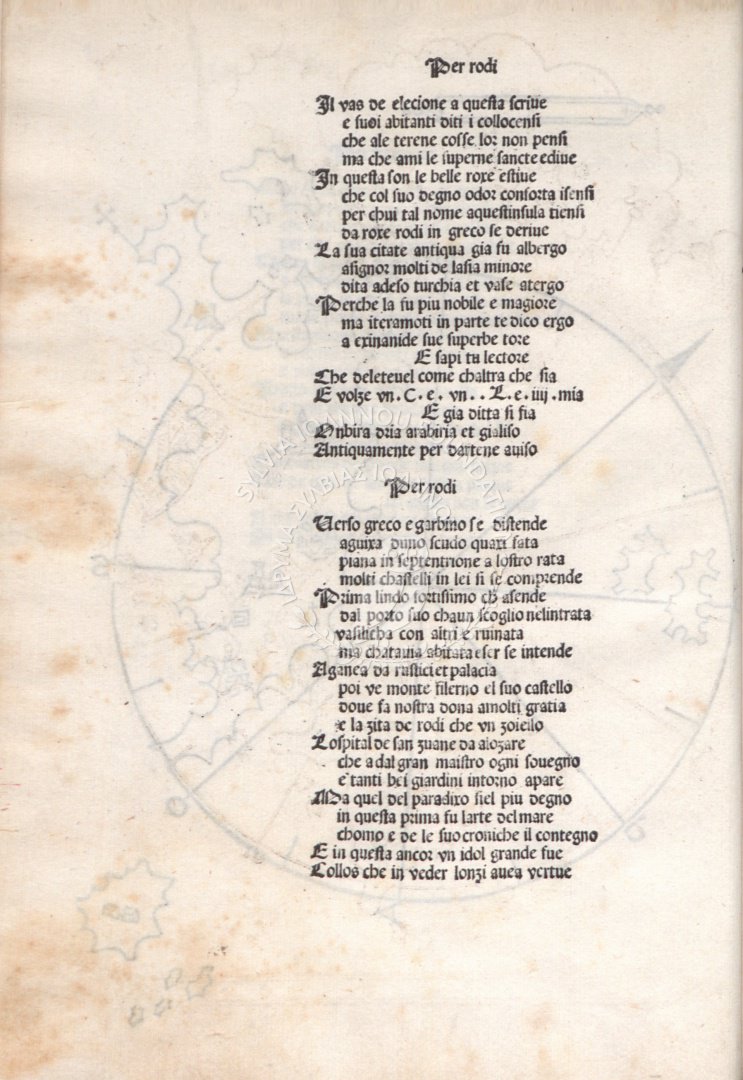 Per rodi
Il vas de elecione a questa scriue
e suoi abitanti diti i collocensi
che ale terene cosse lor non pensi
ma che ami le superne sancte ediue
In questa son le belle roxe estiue
che col suo degno odor conforta isensi
per chui tal nome aquestinsula tiensi
da roxe rodi in greco se deriue
La sua citate antiqua gia fu albergo
asignor molti de lasia minore
dita adeso turchia et vase atergo
Perche la fu piu nobile e magiore
ma iteramoti in parte te dico ergo
a exinanide sue superbe tore
E sapi tu lectore
Che deleteuel come chaltra che sia
E volze vn . C . e . vn . . L . e . iiij . mia
E gia ditta si fia
Onbira dria arabiria et gialiso
Antiquamente per dartene auiso
Per rodi
Uerso greco e garbino se distende
aguixa duno scudo quaxi fata
piana in septentrione a lostro rata
molti chastelli in lei si se comprende
Prima lindo fortissimo che asende
dal porto suo chaun scoglio nelintrata
vasilicha con altri e ruinata
ma chatauia abitata eser se intende
Aganea da rustici et palacia
poi ve monte filerno el suo castello
doue fa nostra dona amolti gratia
e la zita de rodi che vn zoiello
Lospital de san zuane da alozare
che a dal gran maistro ogni souegno
e tanti bei giardini intorno apare
Ma quel del paradixo siel piu degno
in questa prima fu larte del mare
chomo e de le suo croniche il contegno
E in questa ancor vn idol grande fue
Collos che in veder lonzi auea vertue
SYLVIA IOANNOU FOUNDATION
ΙΔΡΥΜΑ ΣΥΛΒΙΑΣ ΙΩΑΝΝΟΥ